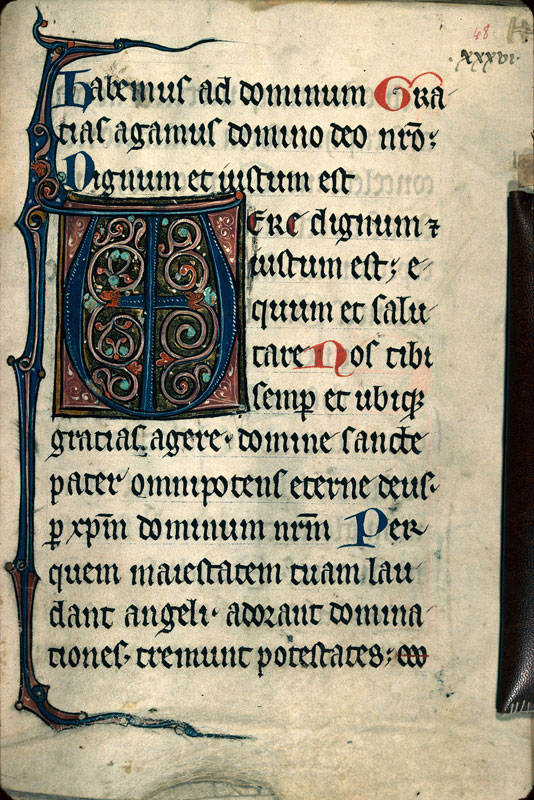 48
xxxvi
habemus ad dominum Gra
tias agamus domino deo nr̄o;
Dignum et iustum est
VERE dignum ⁊
iustum est; e
quum et salu
tare Nos tibi
semp̲ et ubiqꝫ
gracias agere· domine sancte
pater omnipotens eterne deus·
ꝑ xp̄m dominum nr̄m Per
quem maiestatem tuam lau
dant angeli· adorant domina
tiones· tremunt potestates;